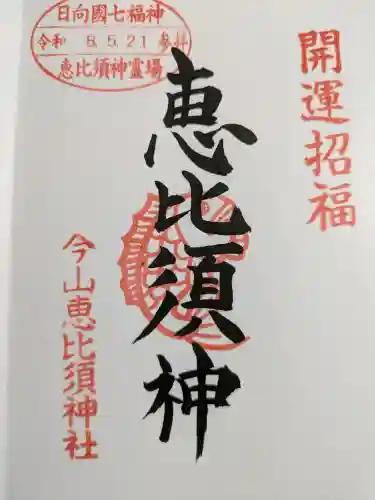 日向國七福神
令和 8.5.21 参拝
恵比須神霊場
開運招福
恵比須神
今山恵比須神社